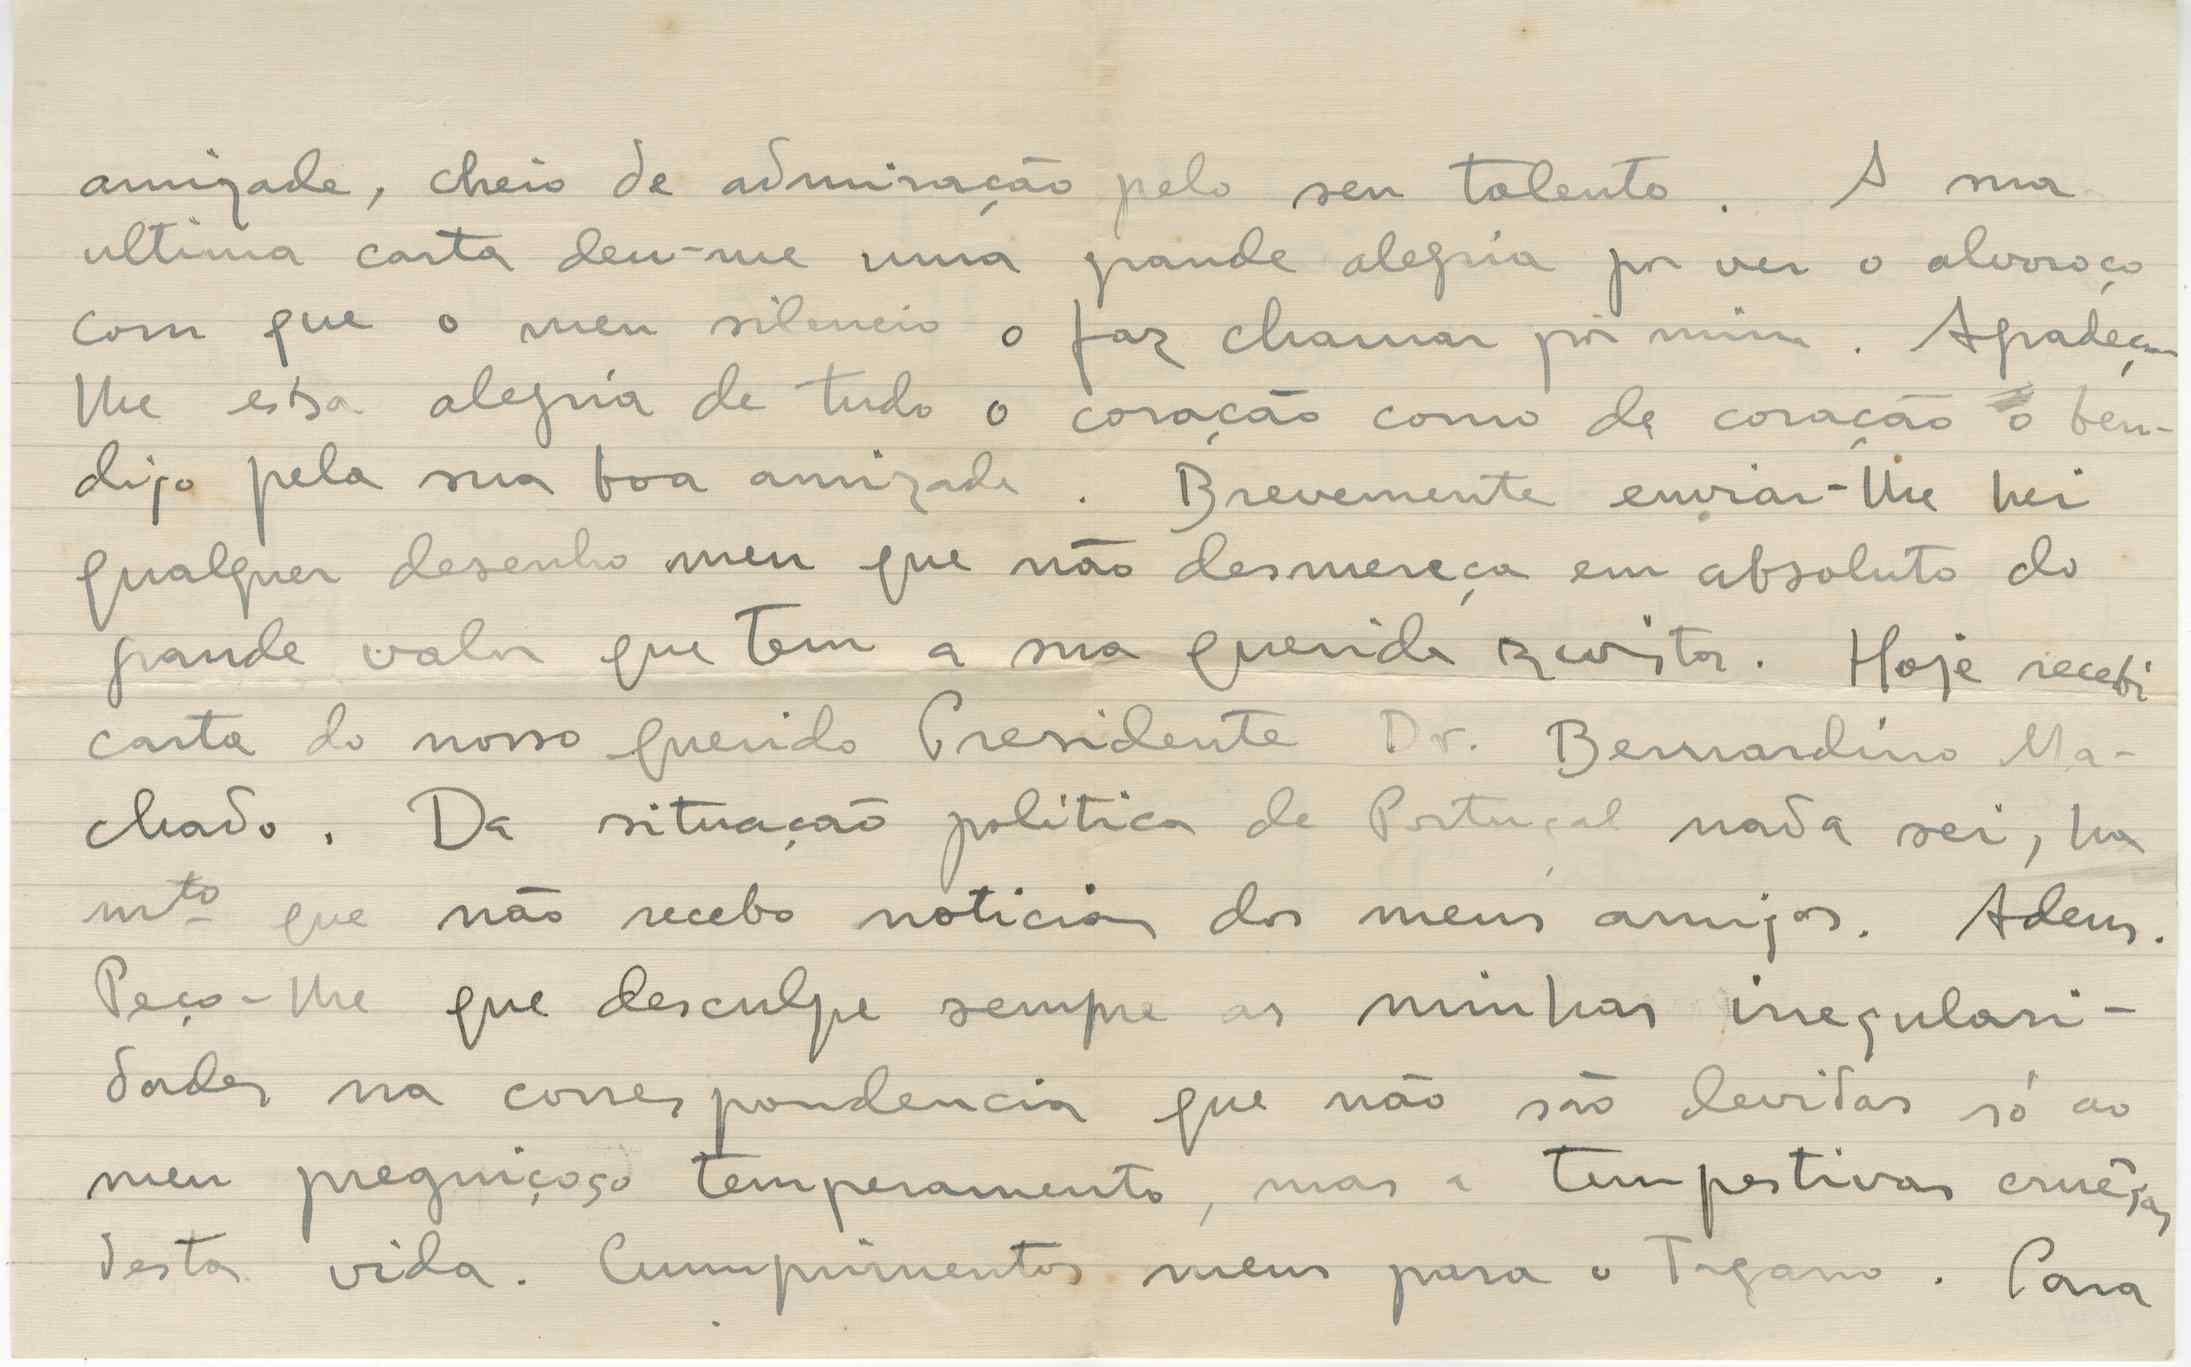 amizade, cheio de admiração pelo seu talento. A sua
ultima carta deu-me uma grande alegria por ver o alvoroço
com que o meu silencio o faz chamar por mim. Agradeço-
lhe essa alegria de tudo o coração como de coração o ben-
digo pela sua boa amizade. Brevemente enviar-lhe hei
qualquer desenho meu que não desmereça em absoluto do
grande valor que tem a sua querida revista. Hoje recebi
carta do nosso querido Presidente Dr. Bernardino Ma-
chado. Da situação politica de Portugal nada sei, ha
mto que não recebo noticias dos meus amigos. Adeus.
Peço-lhe que desculpe sempre as minhas irregulari-
dades na correspondencia que não são devidas só ao
meu preguiçoso temperamento, mas a tempestivas
desta vida. Cumprimentos meus para o Tagano. Para